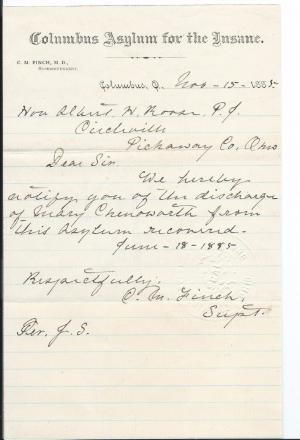 Columbus Asylum for the Insane.
C. M. FINCH, M. D.,
SUPERINTENDENT.
Columbus, O., Nov - 15 - 1885
Hon Albert H. P. J.
Circleville
Pickaway Co. Ohio
Dear Sir
We hereby
notify you of the discharge
of Mary Chenoworth from
this Asylum recovered.
June - 18 - 1885
Respectfully.
C. M. Finch,
Supt.
Per. J. S.